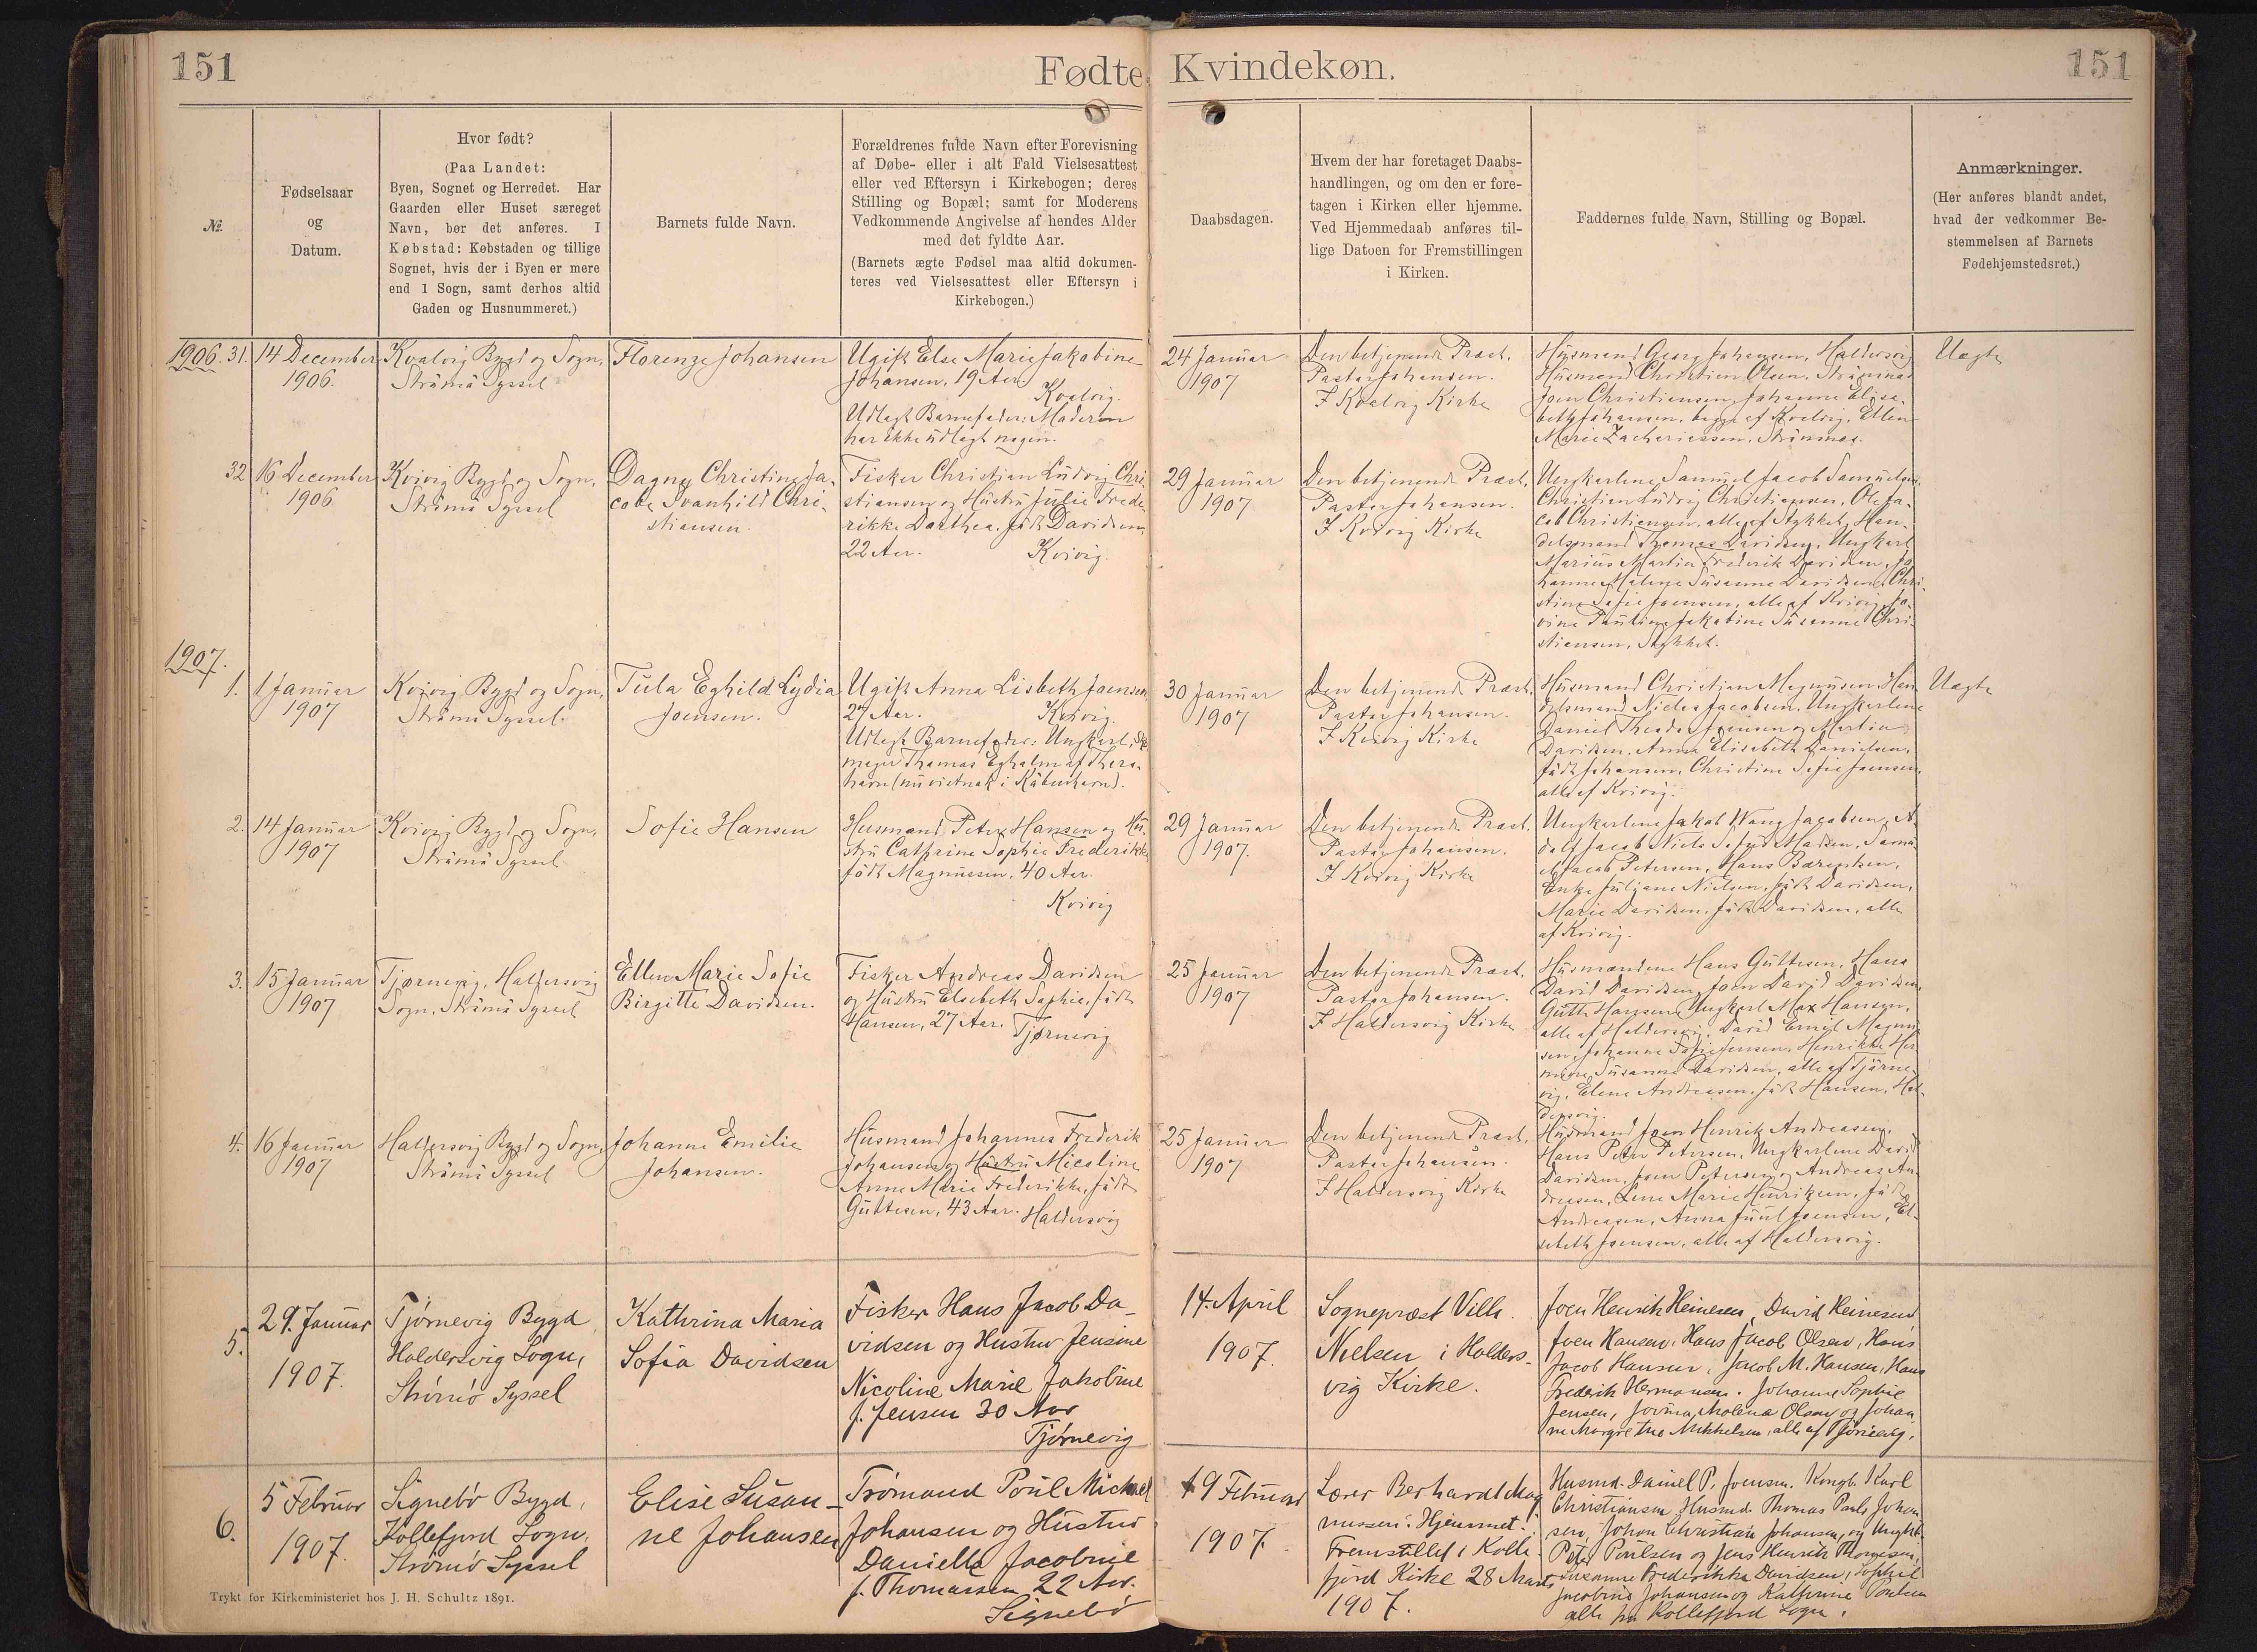 151
Fødte Kvindekøn.
151
№
Fødselsaar
og
Datum.
Hvor født?
(Paa Landet:
Byen, Sognet og Herredet. Har
Gaarden eller Huset særeget
Navn, bør det anføres. I
Købstad: Købstaden og tillige
Sognet, hvis der i Byen er mere
end 1 Sogn, samt derhos altid
Gaden og Husnummeret.)
Barnets fulde Navn.
Forældrenes fulde Navn efter Forevisning
af Døbe- eller i alt Fald Vielsesattest
eller ved Eftersyn i Kirkebogen; deres
Stilling og Bopæl; samt for Moderens
Vedkommende Angivelse af hendes Alder
med det fyldte Aar.
(Barnets ægte Fødsel maa altid dokumen-
teres ved Vielsesattest eller Eftersyn i
Kirkebogen.)
Daabsdagen.
Hvem der har foretaget Daabs-
handlingen, og om den er fore-
tagen i Kirken eller hjemme.
Ved Hjemmedaab anføres til-
lige Datoen for Fremstillingen
i Kirken.
Faddernes fulde Navn, Stilling og Bopæl.
Anmærkninger.
(Her anføres blandt andet,
hvad der vedkommer Be-
stemmelsen af Barnets
Fødehjemstedsret.)
1906. 31.
14 December
1906.
Kvalvig Bygd og Sogn,
Strömö Syssel
Florenze Johansen
Ugift Else Marie Jakobine
Johansen, 19 Aar
Kvalvig.
Udlagt Barnefader: Moderen
har ikke udlagt nogen.
24 Januar
1907
Den betjenende Præst,
Pastor Johansen.
I Kvalvig Kirke
Husmand Georg Johansen, Haldersvig
Husmand Christian Olsen, Strömnæs
Joen Christiansen, Johanne Elisa-
beth Johansen, begge af Kvalvig, Ellen
Marie Zachariassen, Strömnæs.
Uægte
32
16 December
1906
Kvivig Bygd og Sogn,
Strömö Syssel
Dagny Christine Ja-
cobe Svanhild Chri-
stiansen.
Fisker Christian Ludvig Chri
stiansen og Hustru Julie Frede
rikke Dorthea, född Davidsen,
22 Aar. Kvivig.
29 Januar
1907
Den betjenende Præst,
Pastor Johansen.
I Kvivig Kirke
Ungkarlene Samuel Jacob Samuelsen,
Christian Ludvig Christiansen, Ole Ja-
cob Christiansen, alle af Stykket, Han-
delsmand Thomas Davidsen, Ungkarl
Marius Martin Frederik Davidsen, Jo
hanne Malene Susanne Davidsen, Chri-
stine Sofie Joensen, alle af Kvivig, Jo-
vine Pauline Jakobine Susanne Chri-
stiansen, Stykket.
1907.
1.
1 Januar
1907
Kvivig Bygd og Sogn,
Strömö Syssel.
Tula Eghild Lydia
Joensen.
Ugift Anna Lisbeth Joensen,
27 Aar. Kvivig.
Udlagt Barnefader: Ungkarl,
Thomas Egholm af Thors-
havn (nu i Köbenhavn).
30 Januar
1907
Den betjenende Præst,
Pastor Johansen.
I Kvivig Kirke
Husmand Christian Magnussen, Han
delsmand Niclas Jacobsen, Ungkarlene
Daniel Theodor Joensen og Martin
Davidsen, Anna Elisabeth Danielsen,
född Johansen, Christine Sofie Joensen,
alle af Kvivig.
Uægte
2.
14 Januar
1907
Kvivig Bygd og Sogn,
Strömö Syssel
Sofie Hansen
Husmand Peter Hansen og Hu-
stru Cathrine Sophie Frederikke,
född Magnussen, 40 Aar.
Kvivig
29 Januar
1907.
Den betjenende Præst,
Pastor Johansen.
I Kvivig Kirke
Ungkarlene Jakob Wang Jacobsen, A
dolf Jacob Niels Madsen, Samu
el Jacob Petersen, Hans Bærentsen,
Enke Juliane Nielsen, född Davidsen,
Marie Davidsen, född Davidsen, alle
af Kvivig.
3.
15 Januar
1907
Tjørnevig, Haldersvig
Sogn, Strömö Syssel
Ellen Marie Sofie
Birgitte Davidsen.
Fisker Andreas Davidsen
og Hustru Elsebeth Sophie, född
Hansen, 27 Aar. Tjørnevig
25 Januar
1907
Den betjenende Præst,
Pastor Johansen.
I Haldersvig Kirke
Husmændene Hans Guttesen, Hans
David Davidsen, Joen David Davidsen
Gutte Hansen, Ungkarl Max Hansen,
alle af Haldersvig, David Emil Magnu
sen, Johanne Sofie Jensen, Henrikke Her
mine Susanne Davidsen, alle af Tjörne-
vig, Elene Andreasen, född Hansen, Hal-
dersvig.
4.
16 Januar
1907
Haldersvig Bygd og Sogn,
Strömö Syssel
Johanne Emilie
Johansen.
Husmand Johannes Frederik
Johansen og Hustru Micoline
Anne Marie Frederikke, född
Guttesen, 43 Aar. Haldersvig
25 Januar
1907
Den betjenende Præst,
Pastor Johansen.
I Haldersvig Kirke
Husmand Joen Henrik Andreasen,
Hans Peter Petersen, Ungkarlene David
Davidsen, Joen Petersen og Andreas An
dreasen, Lene Marie Henriksen, född
Andreasen, Anna Juul Joensen, El-
sebeth Joensen, alle af Haldersvig.
5.
29. Januar
1907.
Tjørnevig Bygd
Haldersvig Sogn,
Strømø Syssel
Kathrina Maria
Sofia Davidsen
Fisker Hans Jacob Da-
vidsen og Hustru Jensine
Nicoline Marie Jakobine
f. Jensen 30 Aar
Tjørnevig
14. April
1907.
Sognepræst Vilh.
Nielsen i Halders-
vig Kirke.
Joen Henrik Heinesen, David Heinesen,
Joen Hansen, Hans Jacob Olsen, Hans
Jacob Hansen, Jacob M. Hansen, Hans
Frederik Hermansen, Johanne Sophie
Jensen, Jovina Molena Olsen og Johan
ne Margrethe Mikkelsen, alle af Tjørnevig.
6.
5 Februar
1907.
Signebø Bygd,
Kollefjord Sogn,
Strømø Syssel
Elise Susan-
ne Johansen
Trømand Poul Michael
Johansen og Hustru
Daniella Jacobine
f. Thomassen 22 Aar.
Signebø
19 Februar
1907.
Lærer Berhardt Mag
nussen i Hjemmet.
Fremstillet i Kolle
fjord Kirke 28 Marts
1907.
Husmd. Daniel P. Joensen, Karl
Christiansen, Husmd. Thomas Pauli Johan
sen, Johan Christian Johansen, og
Peter Poulsen og Jens Henrik Thomsen,
Susanne Frederikke Davidsen, Sophie
Jacobine Johansen og Kathrine Poulsen
alle fra Kollefjord Sogn.
Trykt for Kirkeministeriet hos J. H. Schultz 1891.